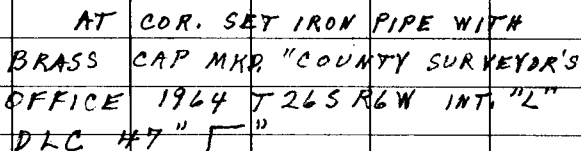 AT COR. SET IRON PIPE WITH
BRASS CAP MKD. "COUNTY SURVEYOR'S
OFFICE 1964 T26S R6W INT. "L"
DLC 47" "